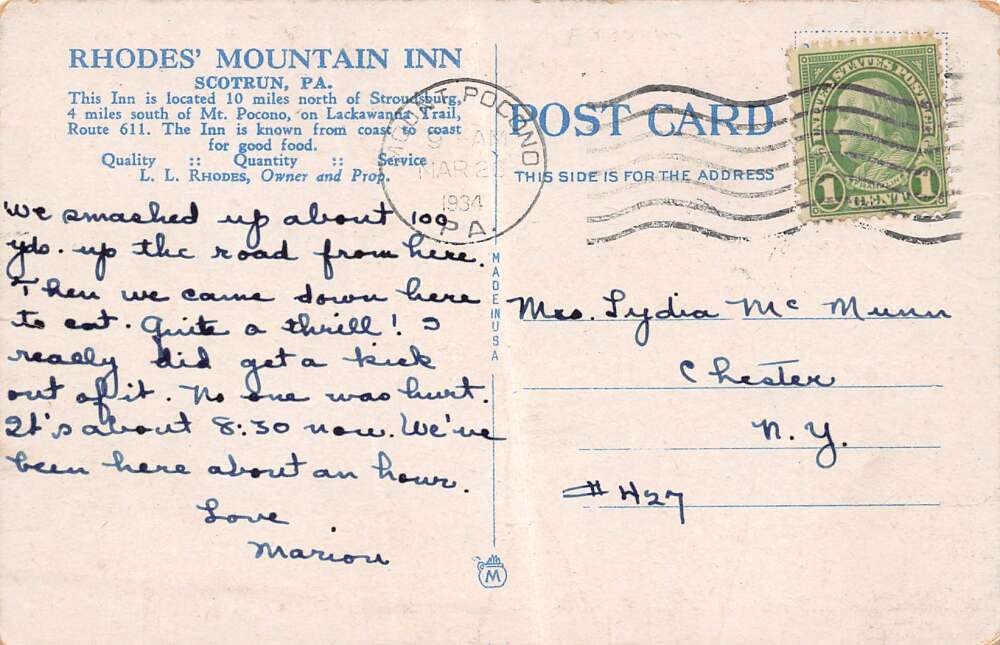 RHODES' MOUNTAIN INN
SCOTRUN, PA.
This Inn is located 10 miles north of Stroudsburg,
4 miles south of Mt. Pocono, on Lackawanna Trail,
Route 611. The Inn is known from coast to coast
for good food.
Quality :: Quantity :: Service
L. L. RHODES, Owner and Prop.
We smashed up about 100
yds. up the road from here.
Then we came down here
to eat. Quite a thrill! I
really did get a kick
out of it. No one was hurt.
It's about 8:30 now. We've
been here about an hour.
Love
Marion
MADE IN USA
M
MOUNT POCONO
9 AM
MAR 2
1934
PA.
POST CARD
THIS SIDE IS FOR THE ADDRESS
UNITED STATES POSTAGE
1 CENT 1
Mrs. Lydia Mc Munn
Chester
N. Y.
# 427